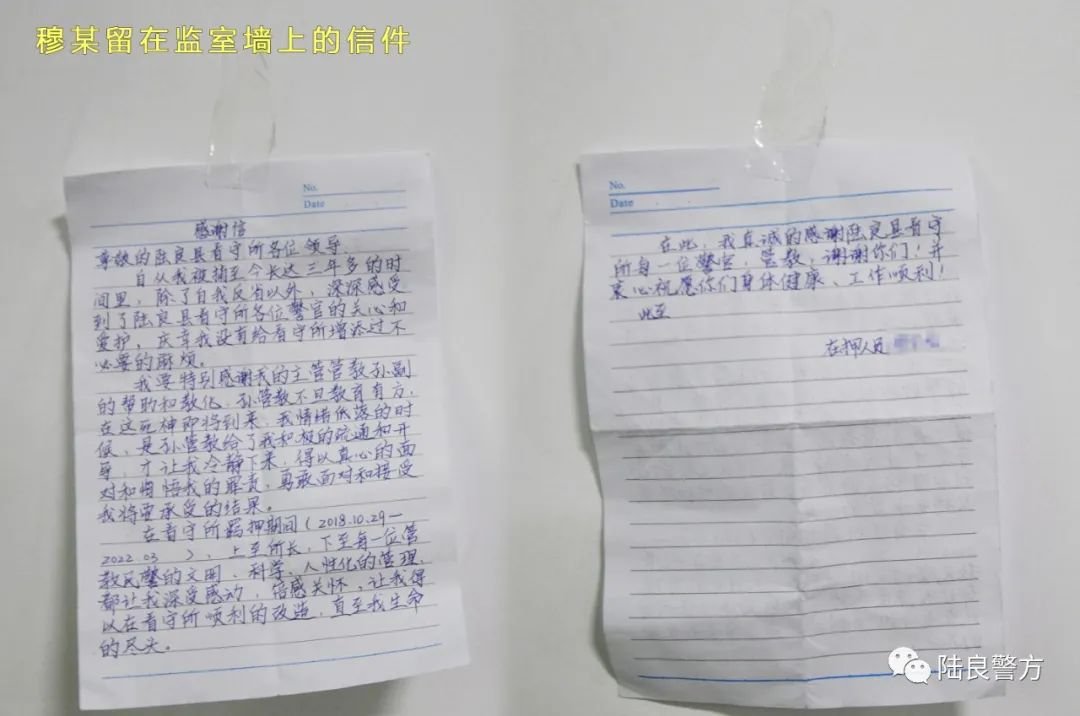 穆某留在监室墙上的信件
No.
Date
感谢信
尊敬的陆良县看守所各位领导:
自从我被捕至今长达三年多的时
间里，除了自我反省以外，深深感受
到了陆良县看守所各位警官的关心和
爱护，庆幸我没有给看守所增添过不
必要的麻烦。
我要特别感谢我的主管管教孙副
的帮助和教化，孙管教不但教育有方，
在这死神即将到来，我情绪低落的时
候，是孙管教给了我积极的疏通和开
导，才让我冷静下来，得以真心的面
对和悔悟我的罪责，勇敢面对和接受
我将要承受的结果。
在看守所羁押期间（2018.10.29—
2022.03 ），上至所长，下至每一位管
教民警的文明、科学、人性化的管理，
都让我深受感动，倍感关怀，让我得
以在看守所顺利的改造，直至我生命
的尽头。
No.
Date
在此，我真诚的感谢陆良县看守
所每一位警官，管教，谢谢你们！并
衷心祝愿你们身体健康、工作顺利！
此至
在押人员
陆良警方